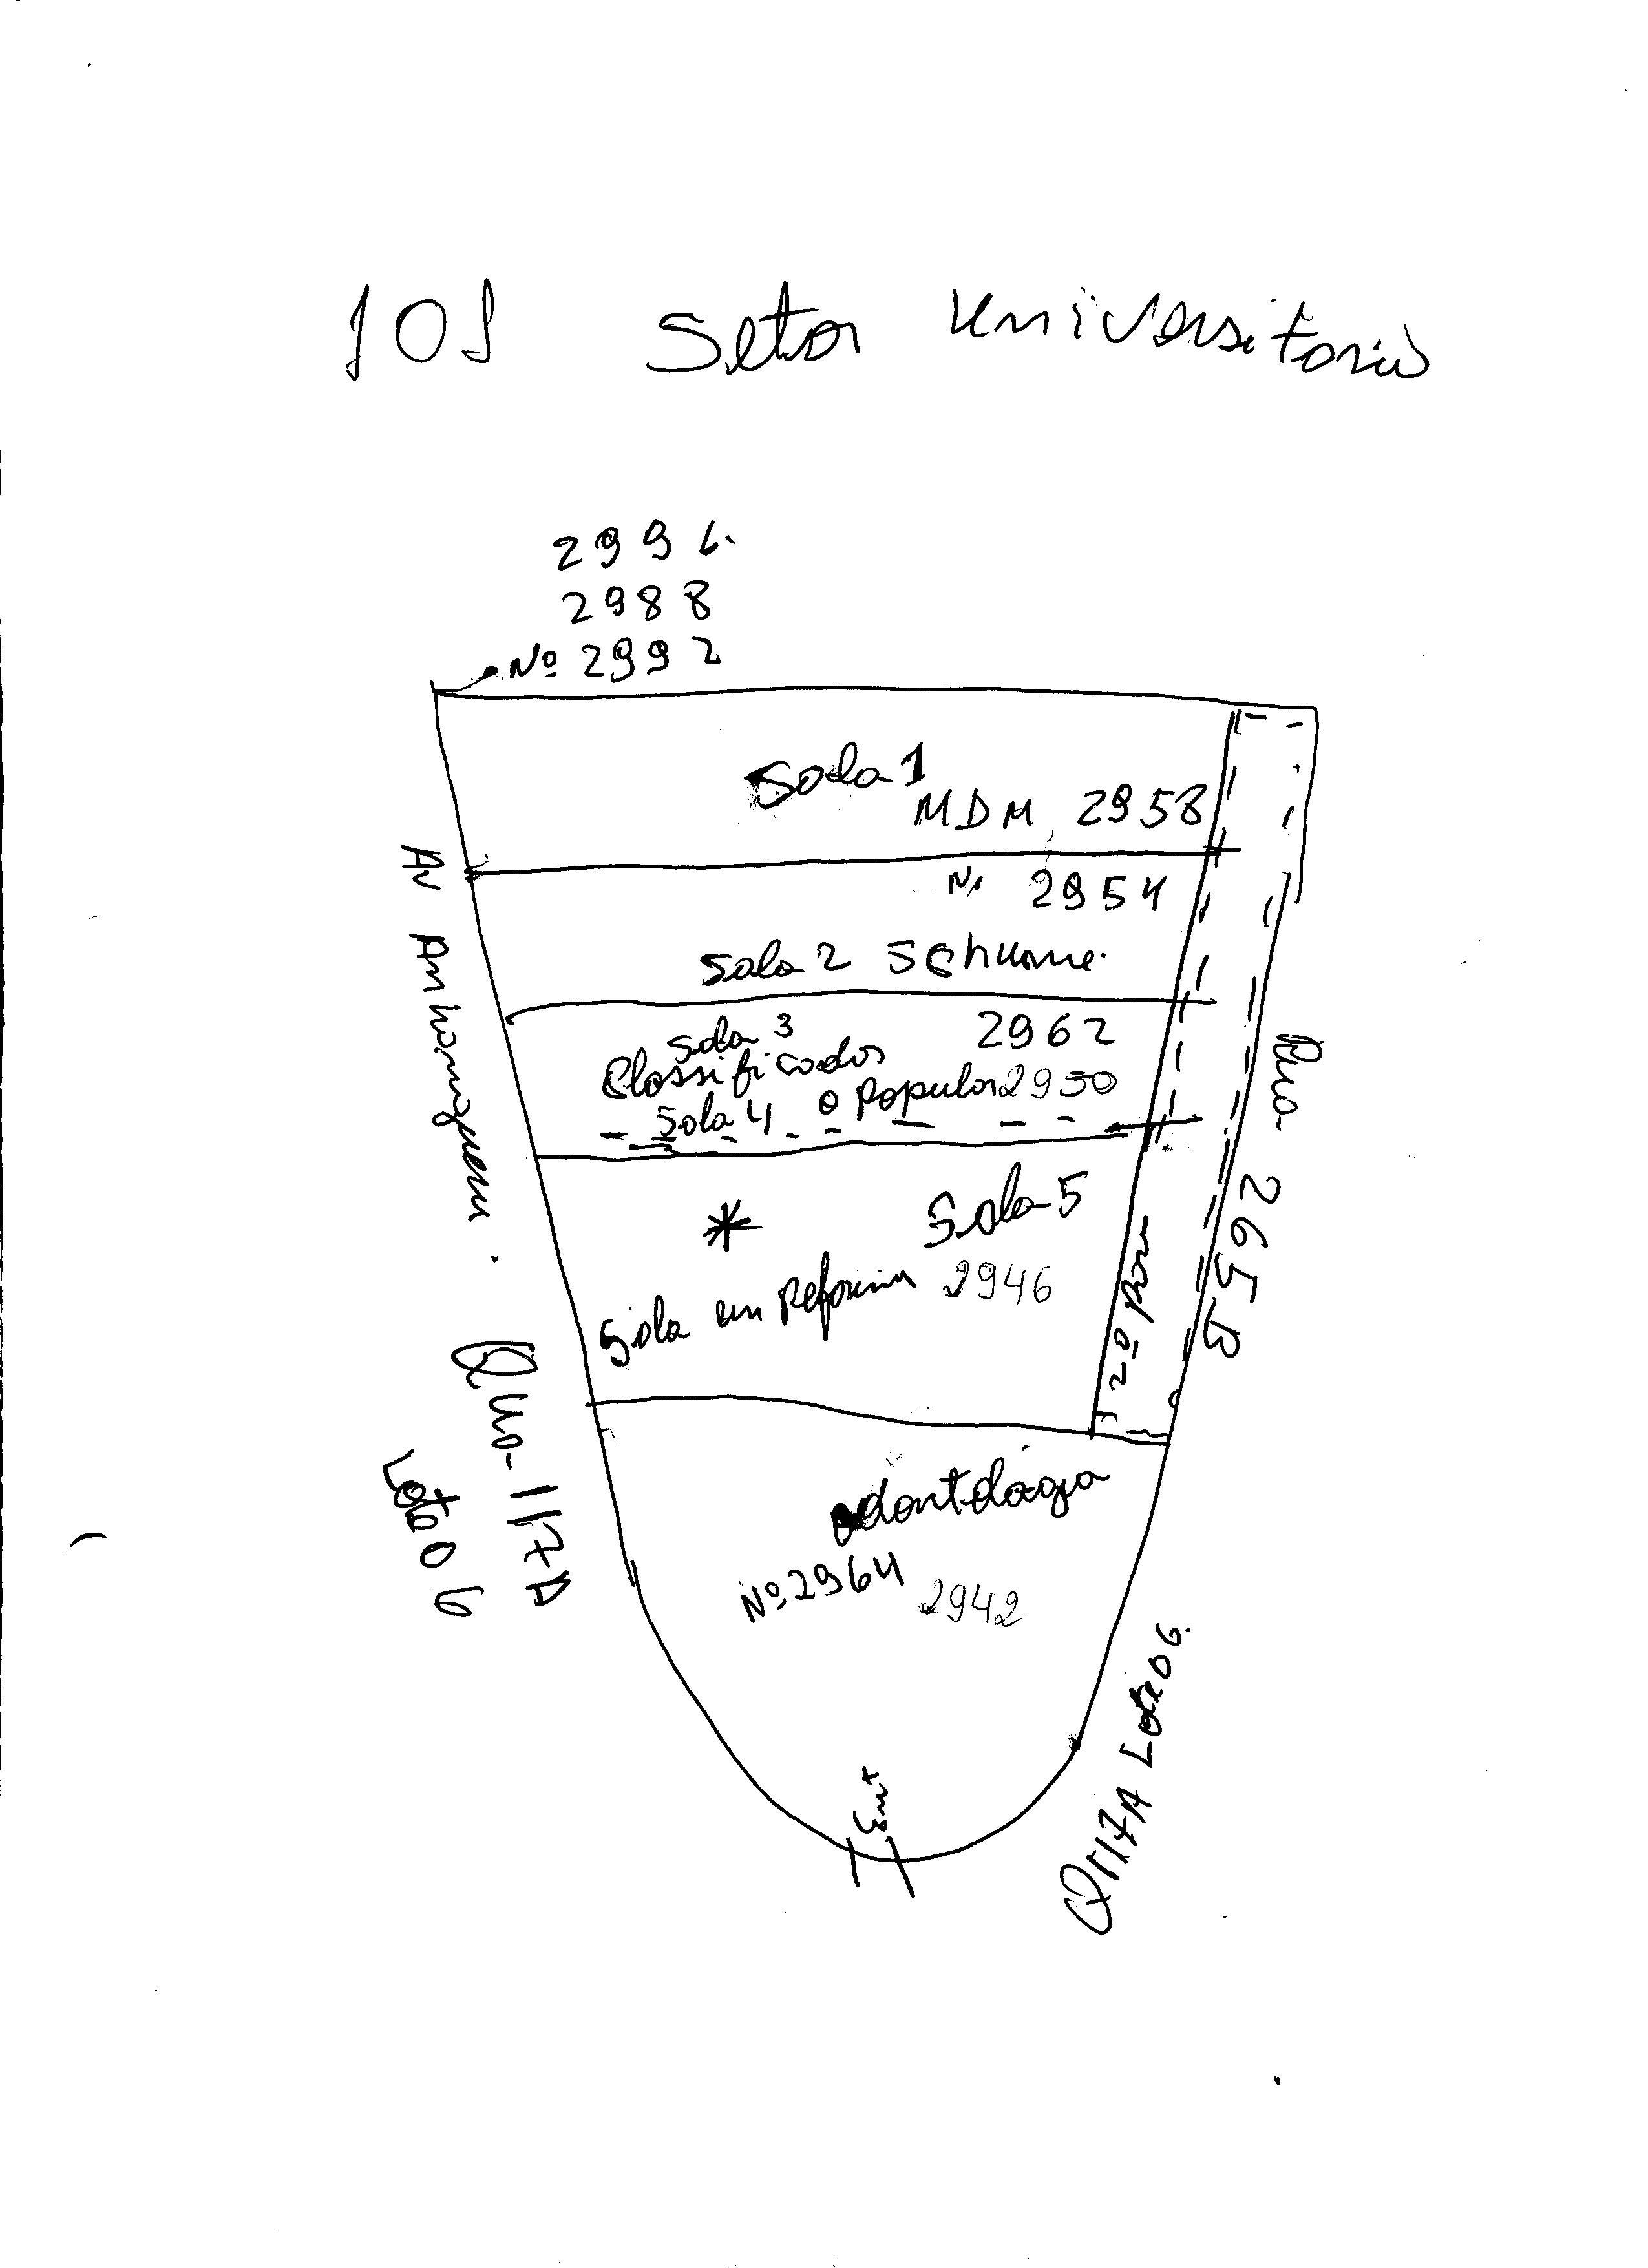 101 Setor Universitario
2996.
2988
Nº 2992
Sala 1
MDM 2958
Nº 2954
Sala 2
Sala 3 2962
Classificados
Sala 4 o Popular 2950
* Sala 5
Sala em Reforma 2946
2º Pav
odontologia
Nº 2964 2942
Ent
Av Anhanguera.
Qua-117A
Lote 06
Rua 265-B
Q117A Lote 06.